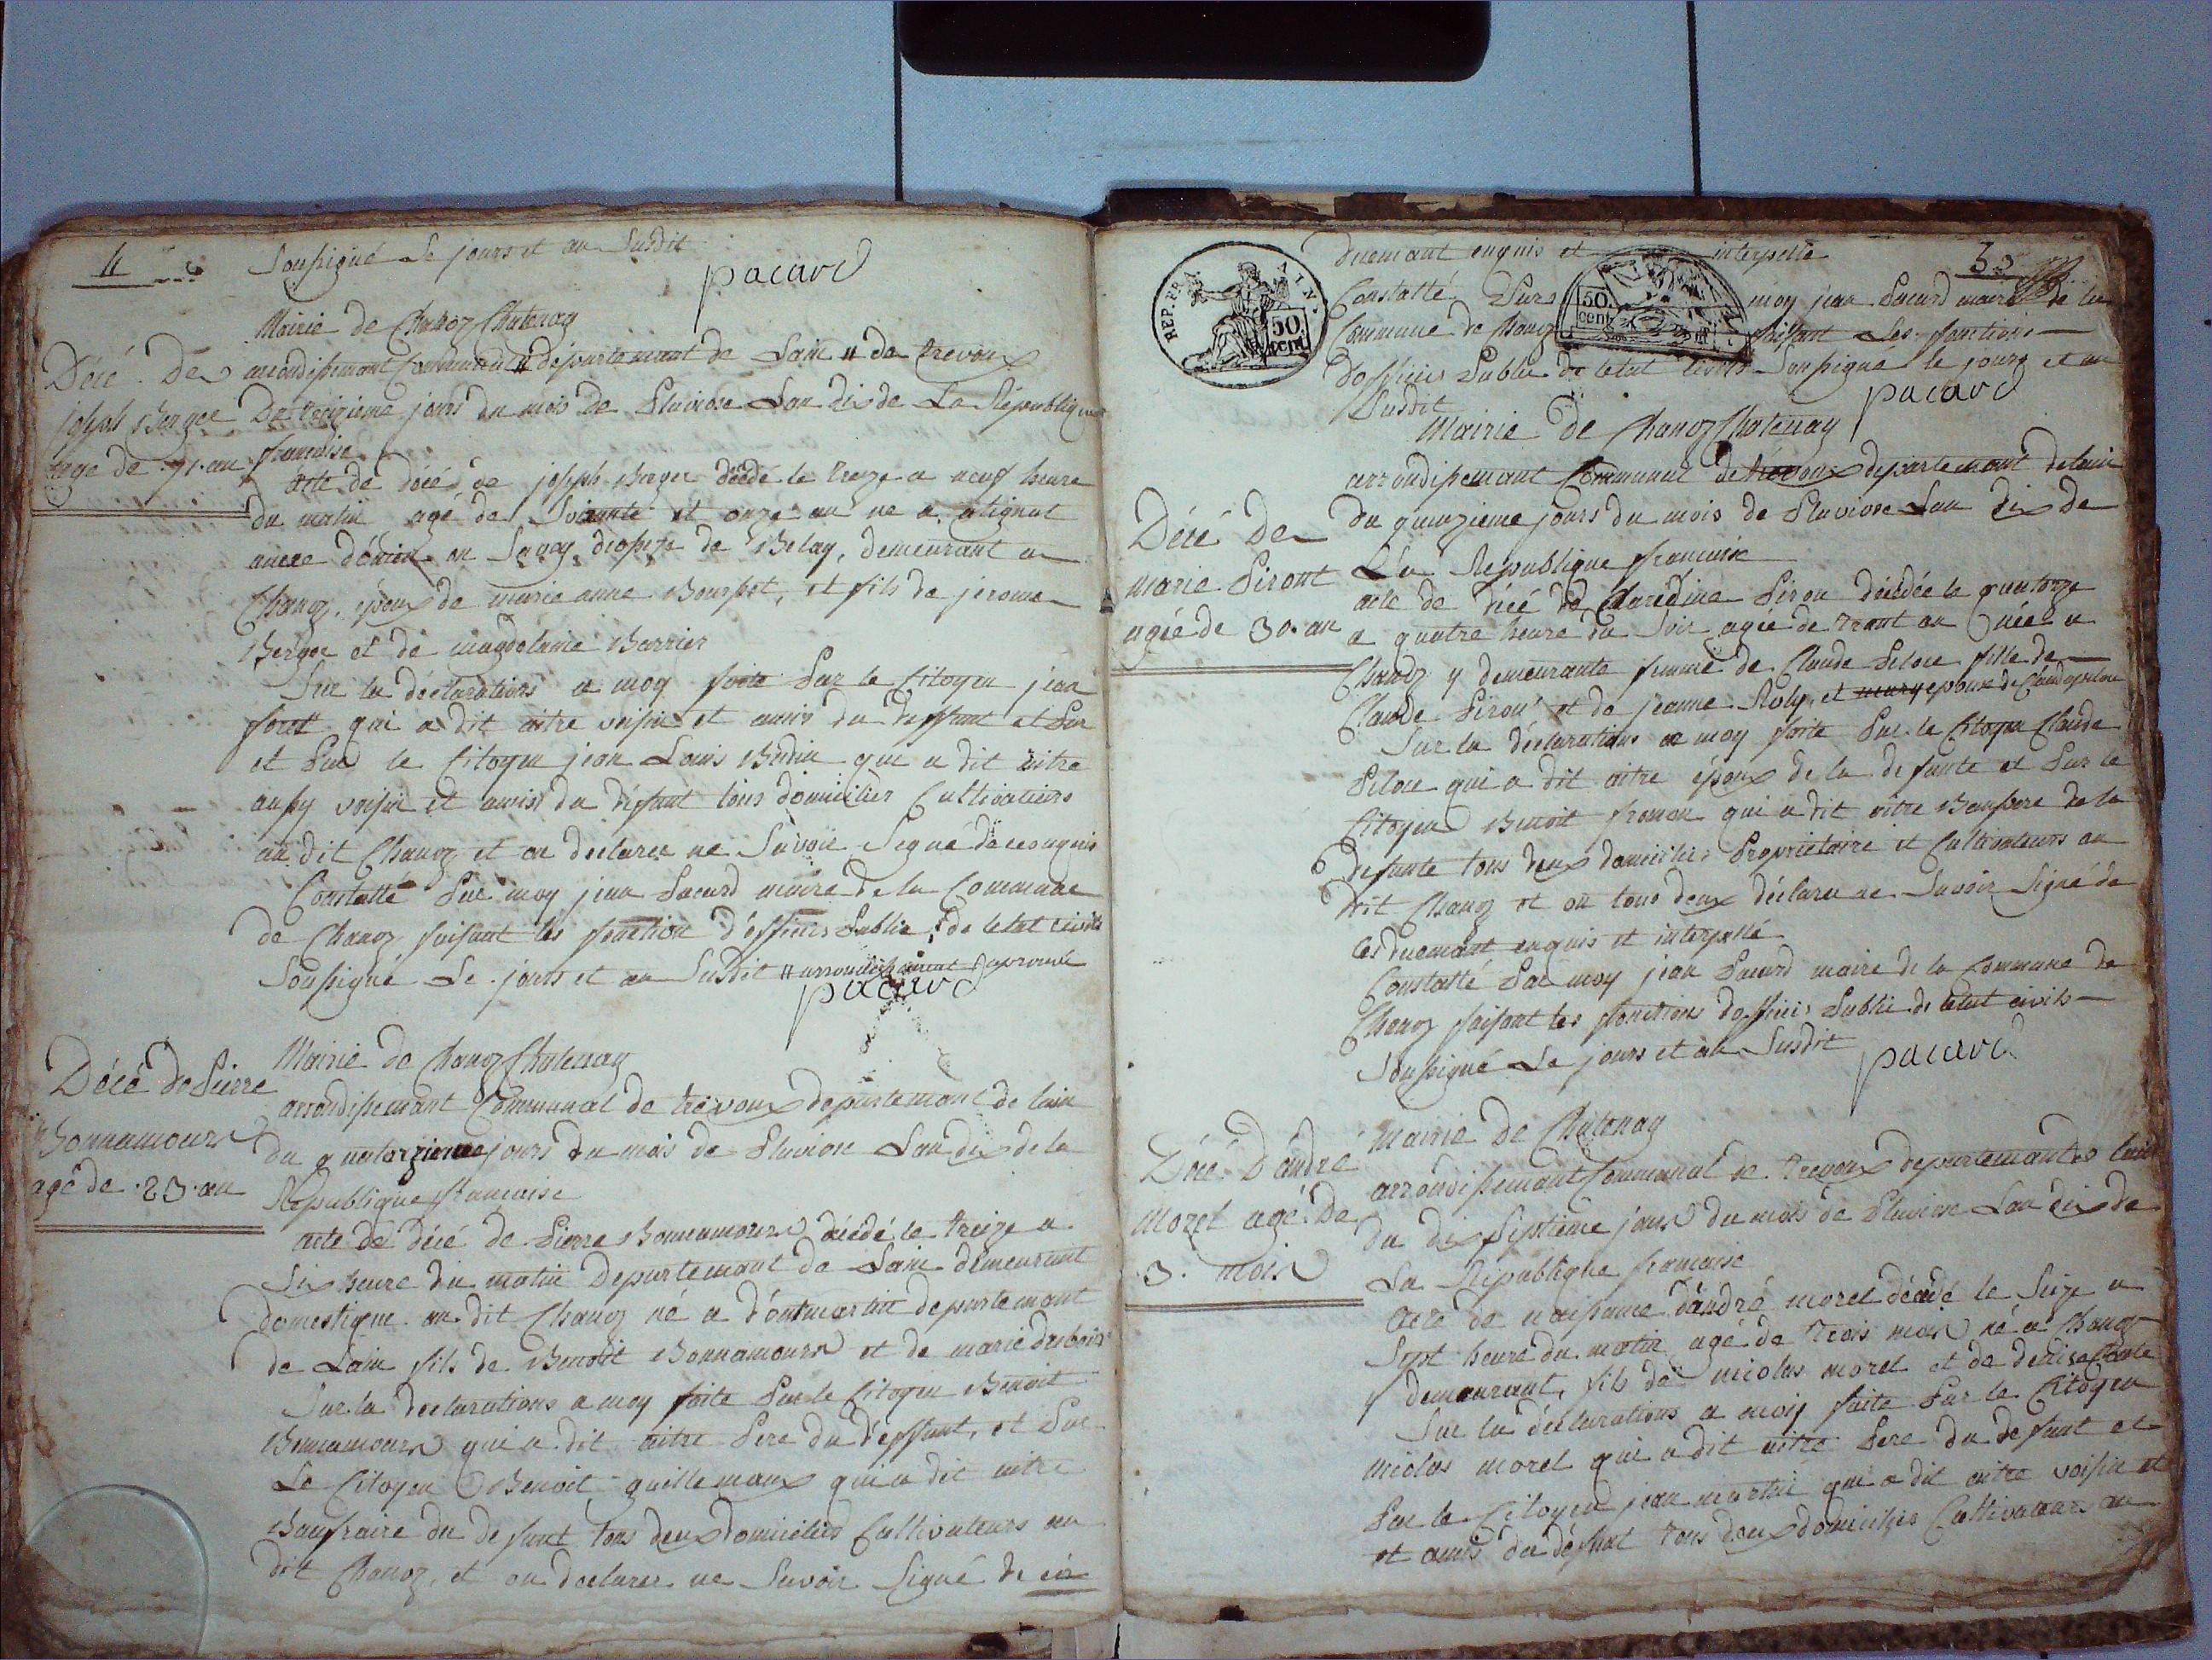 4
Soussigné Le jours et an Susdit
pacard
Mairie de Chanoz Chatenay
Décé De
joseph Berger
age de .71. an
arrondissemant Communal " départemant de Lain " de trevoux
Du treizieme jours du mois de Pluviose Lan dix de La République
francaise
acte de décé de joseph Berger décédé le treize a neuf heure
du matin agé de Soixante et onze an ne a
en Savoy diossesse de Belay, demeurant a
Chanoz, époux de marie anne et fils de jerome
Berger et de magdelaine Barrier
Sur la déclarations a moy faite Par le Citoyen jean
foret qui a dit aitre voisin et amis du deffunt et Par
et Par le Citoyen jean Louis Bedin qui a dit aitre
aussy voisin et amis du défunt tous domicilier Cultivateurs
au dit Chanoz et on declarer ne Savoir Signé de ce enquis
Constatté Par moy jean Pacard maire de la Commune
de Chanoz faisant les fonction d'officier Public de letat civils
Soussigné Le jours et an Susdit " arrondissemant aprouvé
pacard
Décé de Pierre
Bonnamours
agé de .23. an
Mairie de Chanoz Chatenay
arrondissemant Communal de trévoux departemant de lain
du quatorzieme jours du mois de Pluviose Lan dix de la
République francaise
acte de décé de Pierre Bonnamours décédé le treize a
Six heure du matin Departemant de Lain demeurant
domestique au dit Chanoz né a departemant
de Lain fils de Benoit Bonnamours et de marie dubois
Sur la declarations a moy faite Par le Citoyen Benoit
Bonnamours qui a dit aitre Pere du deffunt, et Par
Le Citoyen Benoit guillemaux qui a dit aitre
Baufraire du defunt tous deux domiciliés Cultivateurs au
dit Chanoz, et on declarer ne Savoir Signé de ce
REP. FRA. AIN.
50 cent
50 cent
duemant enquis et interpellé
Constatté Par moy jean Pacard maire de la
Commune de Chanoz faisant Les fonctions
dofficier Public de letat civils Soussigné le jours et an
Susdit
pacard
Décé De
Marie Piront
agée de 30. an
Mairie de Chanoz Chatenay
arrondissemant Communal de trévoux departemant de lain
du quinzieme jours du mois de Pluviose Lan dix de
La République francaise
acte de décé de Claudine Piron décédée le quatorze
a quatre heure du Soir agée de trant an née a
Chanoz y demeurante femme de Claude Pelou fille de
Claude Piron et de jeanne Roly, et epoux de Claude pelou
Sur la déclarations a moy faite Par le Citoyen Claude
Pelou qui a dit aitre époux de la defunte et Par le
Citoyen Benoit froman qui a dit aitre Baupere de la
defunte tous deux domicilier Propriétaire et Cultivateurs au
dit Chanoz et on tous deux déclarer ne Savoir Signé de
ces duemant enquis et interpellé
Constatté Par moy jean Pacard maire de la Commune de
Chanoz faisant les fonctions dofficier Public de letat civils
Soussigné Le jours et an Susdit
pacard
Décé D'andré
Morel agé De
3. mois
Mairie de Chatenay
arrondissemant Communal de trevoux departemant de lain
du dix Septieme jours du mois de Pluviose Lan dix de
La République francaise
acte de naissance d'andré morel décédé le Seize a
Sept heure du matin agé de trois mois né a Chanoz
y demeurant, fils de nicolas morel et de denise
Sur la déclarations a moy faite Par le Citoyen
nicolas morel qui a dit aitre Pere du defunt et
Par le Citoyen jean martin qui a dit aitre voisin et
et amis du défunt tous deux domicilier Cultivateurs au